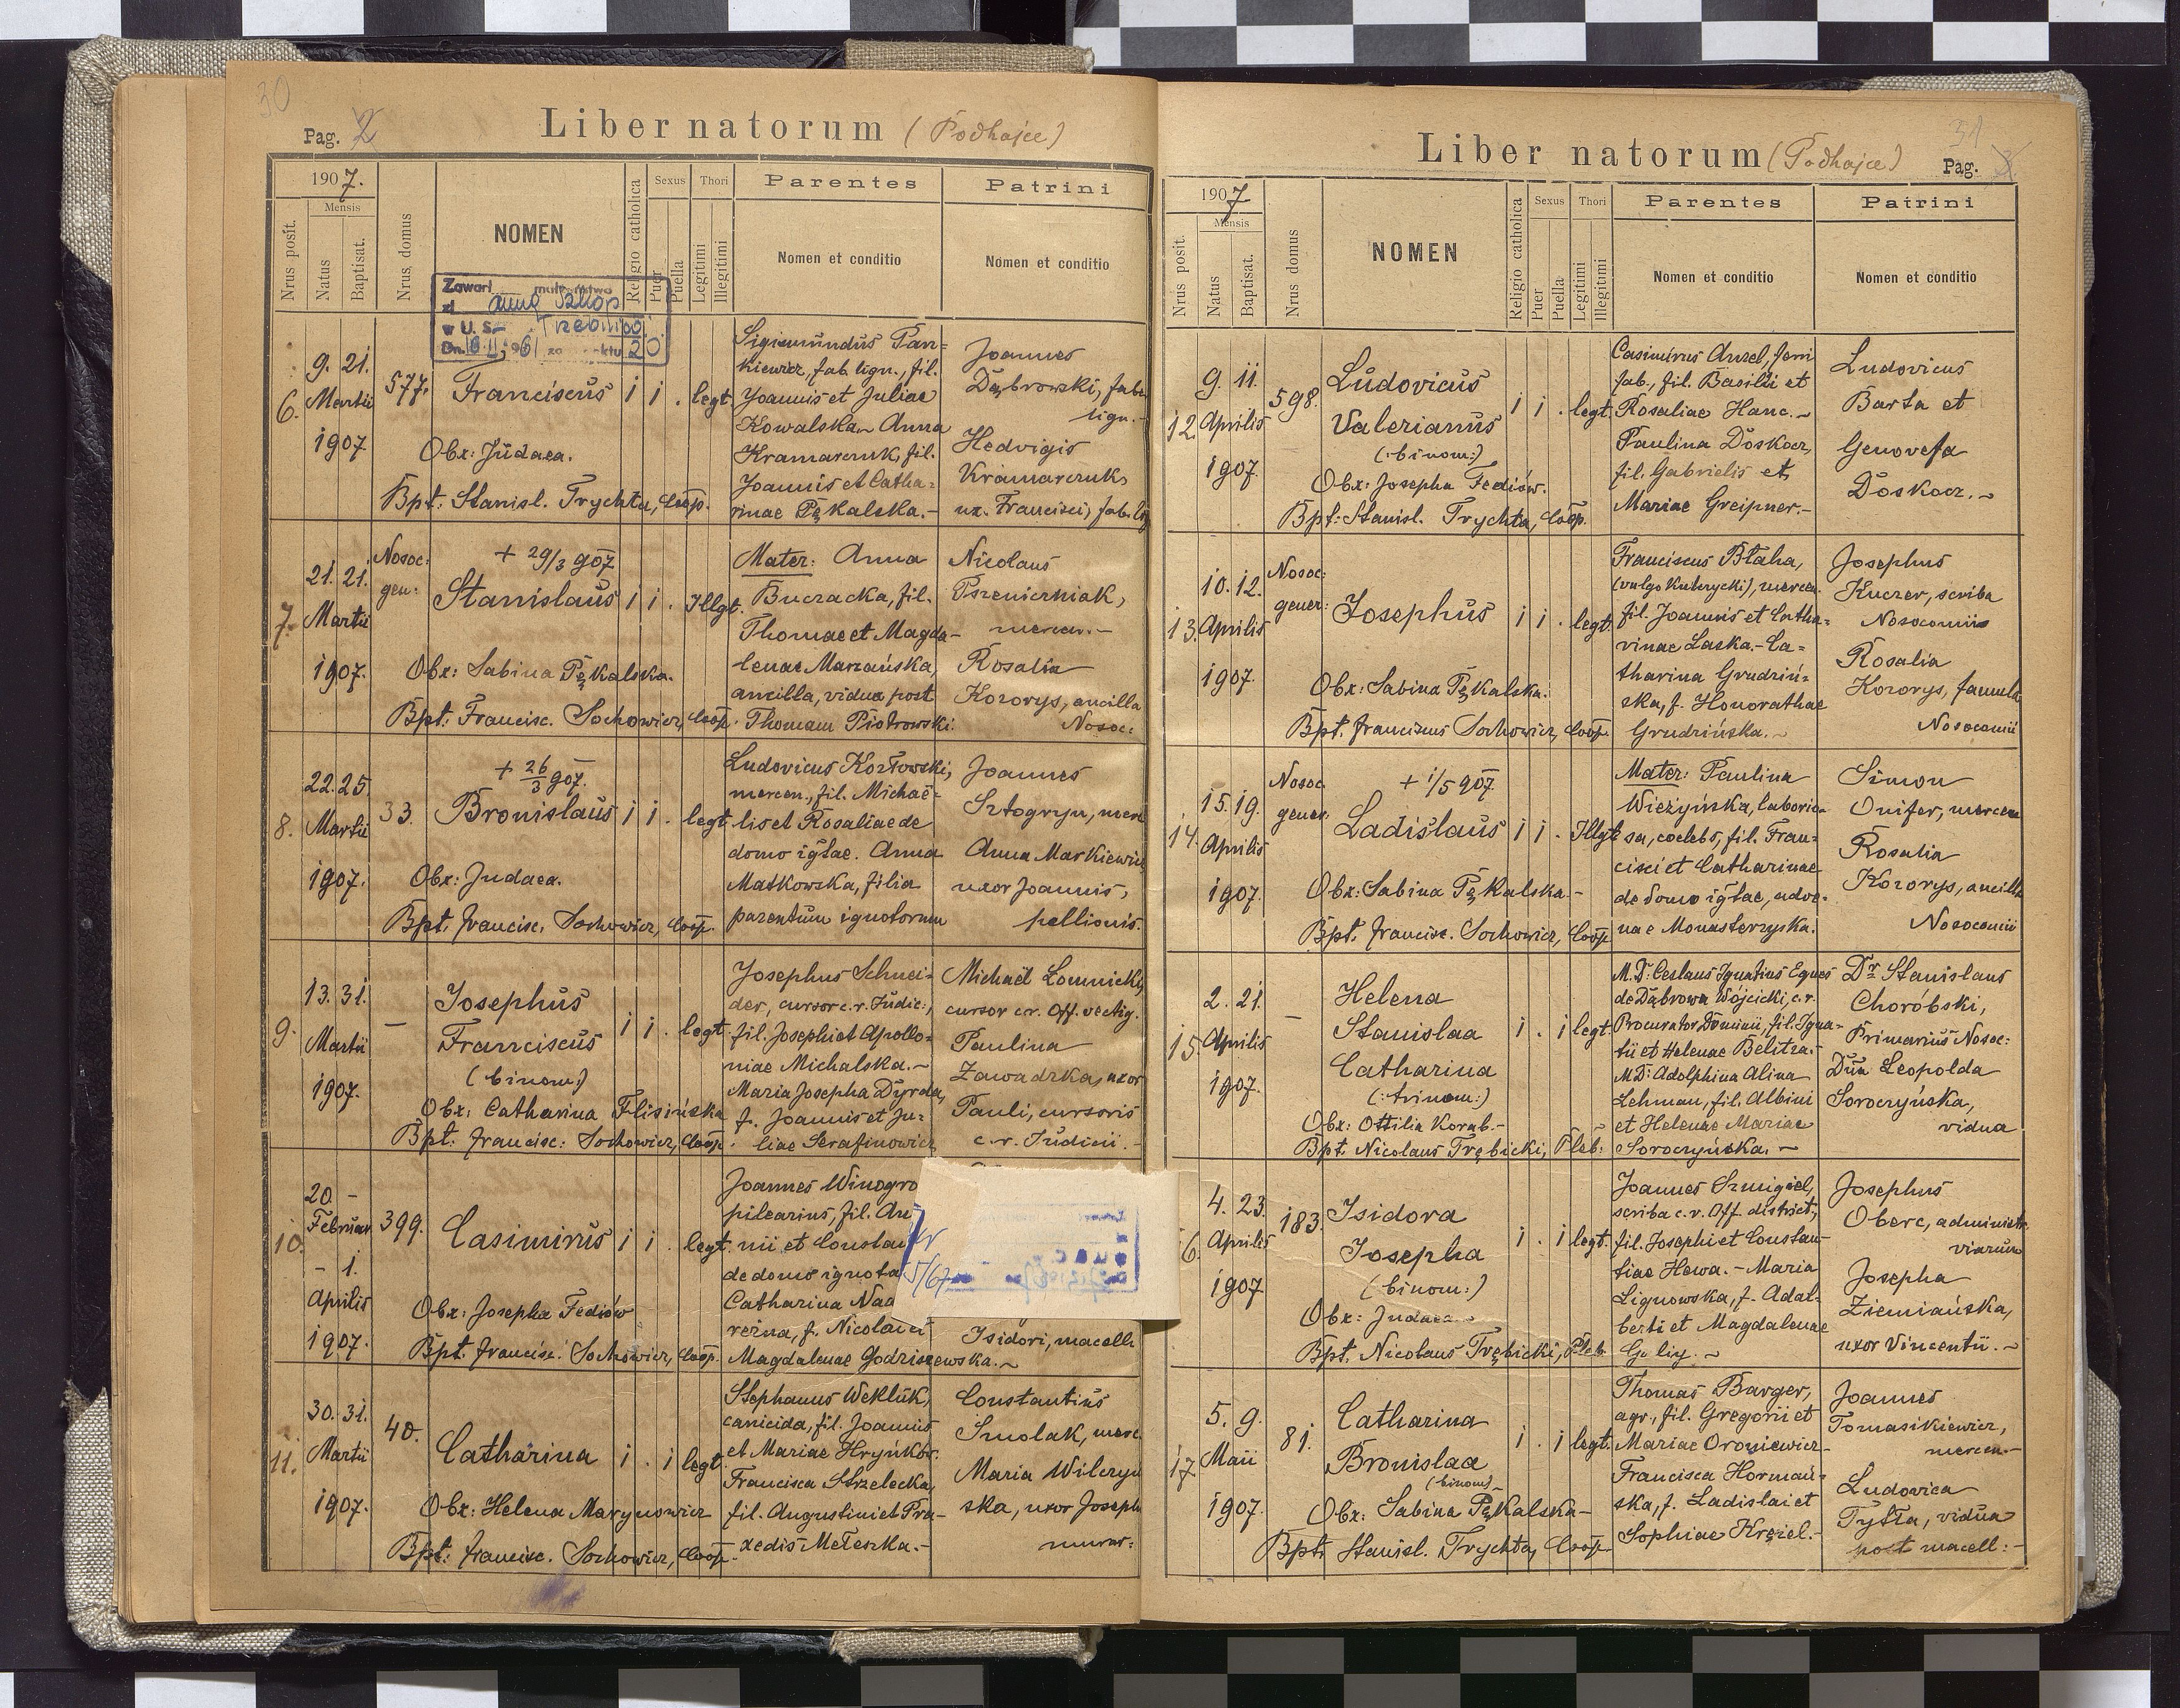 30
Pag. 2
Liber natorum (Podhajce)
1907.
Mensis
Nrus posit.
Natus
Baptisat.
Nrus domus
NOMEN
Religio catholica
Sexus
Puer
Puella
Thori
Legitimi
Illegitimi
Parentes
Nomen et conditio
Patrini
Nomen et conditio
Zawarł małżeństwo
w U. S.
6.
9. 21.
Martii
1907
577.
Franciscus
i i . legt.
Obx: Judaea.
Bpt: Stanisl. Trychta, Coop.
Sigismundus Pan=
kiewicz, fab. lign., fil.
Joannis et Juliae
Kowalska. Anna
Kramarczuk, fil.
Joannis et Catha=
rinae Pękalska.-
Joannes
Dąbrowski, fabr.
lign.-
Hedvigis
Kramarczuk,
ux. Francisci, fab. lig
7.
21. 21.
Martii
1907.
Nosoc:
gen:
+ 29/3 907
Stanislaus
i i . Illgt.
Obx: Sabina Pękalska.
Bpt: Francisc. Sochowicz, Coop.
Mater: Anna
Buczacka, fil.
Thomae et Magda-
lenae Marzańska,
ancilla, vidua post
Thomam Piotrowski.
Nicolaus
Pszeniczniak,
mercen.-
Rosalia
Kozorys, ancilla
Nosoc:
8.
22. 25.
Martii
1907.
33.
+ 26/3 907.
Bronislaus
i i . legt.
Obx: Judaea.
Bpt. Francisc. Sochowicz, Coop.
Ludovicus Kozłowski,
mercen., fil. Michaë-
lis et Rosaliae de
domo igtae. Anna
Matkowska, filia
parentum ignotorum
Joannes
Sztogryn, merc
Anna Markiewicz
uxor Joannis,
pellionis.
9.
13. 31.
Martii
1907.
-
Josephus
Franciscus
(binom:)
i i . legt.
Obx: Catharina Flisińska
Bpt: Francisc: Sochowicz, Coop.
Josephus Schnei-
der, cursor c.r. Judic:,
fil. Josephi et Apollo-
niae Michalska.-
Maria Josepha Dyrda,
f. Joannis et Ju=
liae Serafinowicz
Michaël Łomnicki,
cursor c.r. Off. vectig.
Paulina
Zawadzka, uxor
Pauli, cursoris
c.r. Judicii.-
10.
20. -
Februar
- 1.
Aprilis
1907.
399.
Casimirus
i i . legt.
Obx: Josepha Fediów
Bpt. Francisc: Sochowicz, Coop.
Joannes Winogro
pilearius, fil. An
nii et Constan
de domo ignota
Catharina Nad
rezna, f. Nicolai et
Magdalenae Godziszewska.-
Isidori, macell.
11.
30. 31.
Martii
1907.
40.
Catharina
i . i legt.
Obx: Helena Marynowicz
Bpt: Francisc. Sochowicz, Coop.
Stephanus Wekluk,
canicida, fil. Joannis
et Mariae Hryńków.
Francisca Strzelecka,
fil. Augustini et Pra-
xedis Meteszka.-
Constantius
Smolak, merc.
Maria Wilczyń
ska, uxor Joseph
murar:
31
Pag. 3
Liber natorum (Podhajce)
1907
Mensis
Nrus posit.
Natus
Baptisat.
Nrus domus
NOMEN
Religio catholica
Sexus
Puer
Puella
Thori
Legitimi
Illegitimi
Parentes
Nomen et conditio
Patrini
Nomen et conditio
12.
9. 11.
Aprilis
1907.
598.
Ludovicus
Valerianus
(:binom:)
i i . legt.
Obx: Josepha Fediów.
Bpt: Stanisl. Trychta, Coop.
Casimirus Anzel, ferri
fab., fil. Basilii et
Rosaliae Hanc.-
Paulina Doskocz,
fil. Gabrielis et
Mariae Greipner.-
Ludovicus
Barta et
Genovefa
Doskocz.-
13.
10. 12.
Aprilis
1907.
Nosoc:
gener:
Josephus
i i . legt.
Obx: Sabina Pękalska.
Bpt. Franciscus Sochowicz, Coop.
Franciscus Błaha,
(vulgo Kubrycki), mercen.
fil. Joannis et Catha=
rinae Laska.- Ca=
tharina Grudziń-
ska, f. Honorathae
Grudzińska.-
Josephus
Kuczer, scriba
Nosocomii
Rosalia
Kozorys, famula
Nosocomii
14.
15. 19.
Aprilis
1907.
Nosoc
gener.
+ 1/5 907.
Ladislaus
i i . Illgt.
Obx: Sabina Pękalska.-
Bpt. Francisc. Sochowicz, Coop.
Mater: Paulina
Wieżyńska, laborio-
sa, coelebs, fil. Fran-
cisci et Catharinae
de domo igtae, adve-
nae Monasterzyska.
Simon
Onifer, mercen
Rosalia
Kozorys, ancilla
Nosocomii
15.
2. 21.
Aprilis
1907.
-
Helena
Stanislaa
Catharina
(:trinom:)
i . i legt.
Obx: Ottilia Korab.-
Bpt. Nicolaus Trębicki, Pleb:
M.D: Ceslaus Ignatius Eques
de Dąbrowa Wójcicki, c.r.
Procurator Dominii, fil. Igna-
tii et Helenae Belitza.-
M.D: Adolphina Alina
Lehman, fil. Albini
et Helenae Mariae
Soroczyńska.-
Dr Stanislaus
Choróbski,
Primarius Nosoc:
Dna Leopolda
Soroczyńska,
vidua
16.
4. 23.
Aprilis
1907
183.
Isidora
Josepha
(binom:)
i . i legt.
Obx: Judaea.
Bpt. Nicolaus Trębicki, Pleb.
Joannes Szmigiel,
scriba c.r. Off. district.,
fil. Josephi et Constan-
tiae Hewa.- Maria
Lignowska, f. Adal-
berti et Magdalenae
Josephus
Oberc, administr.
viarum
Josepha
Ziemiańska,
uxor Vincentii.-
17
5. 9.
Maii
1907.
81.
Catharina
Bronislaa
(binom)
i . i legt.
Obx: Sabina Pękalska-
Bpt. Stanisl. Trychta, Coop.
Thomas Barger,
agr., fil. Gregorii et
Mariae Oroniewicz.
Francisca Hormań-
ska, f. Ladislai et
Sophiae Kręzel.-
Joannes
Tomasikiewicz,
mercen.-
Ludovica
Tytta, vidua
post macell:-